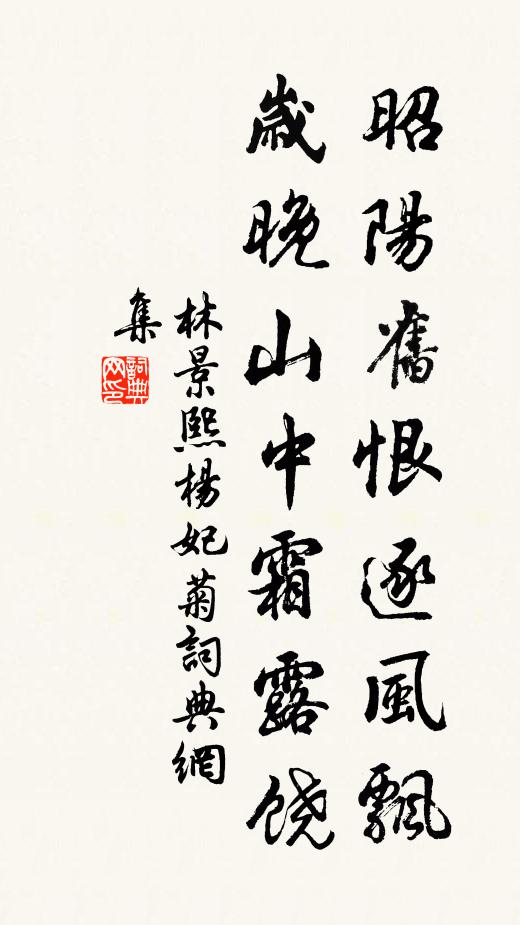 昭陽舊恨逐風飄
歲晚山中霜露饶
林景熙楊妃菊詞典網
集
詞典
网印